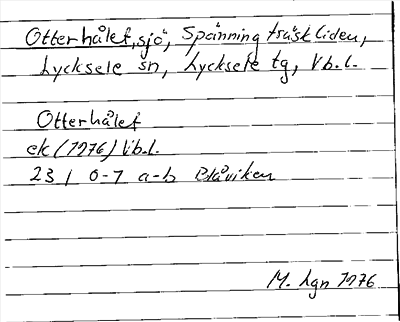 Otterhålet, sjö, Spänningträskliden,
Lycksele sn, Lycksele tg, Vb.l.
Otterhålet
ek (1976) Vb.l.
23 I 0-1 a-b Blåviken
M. Lgn 1976